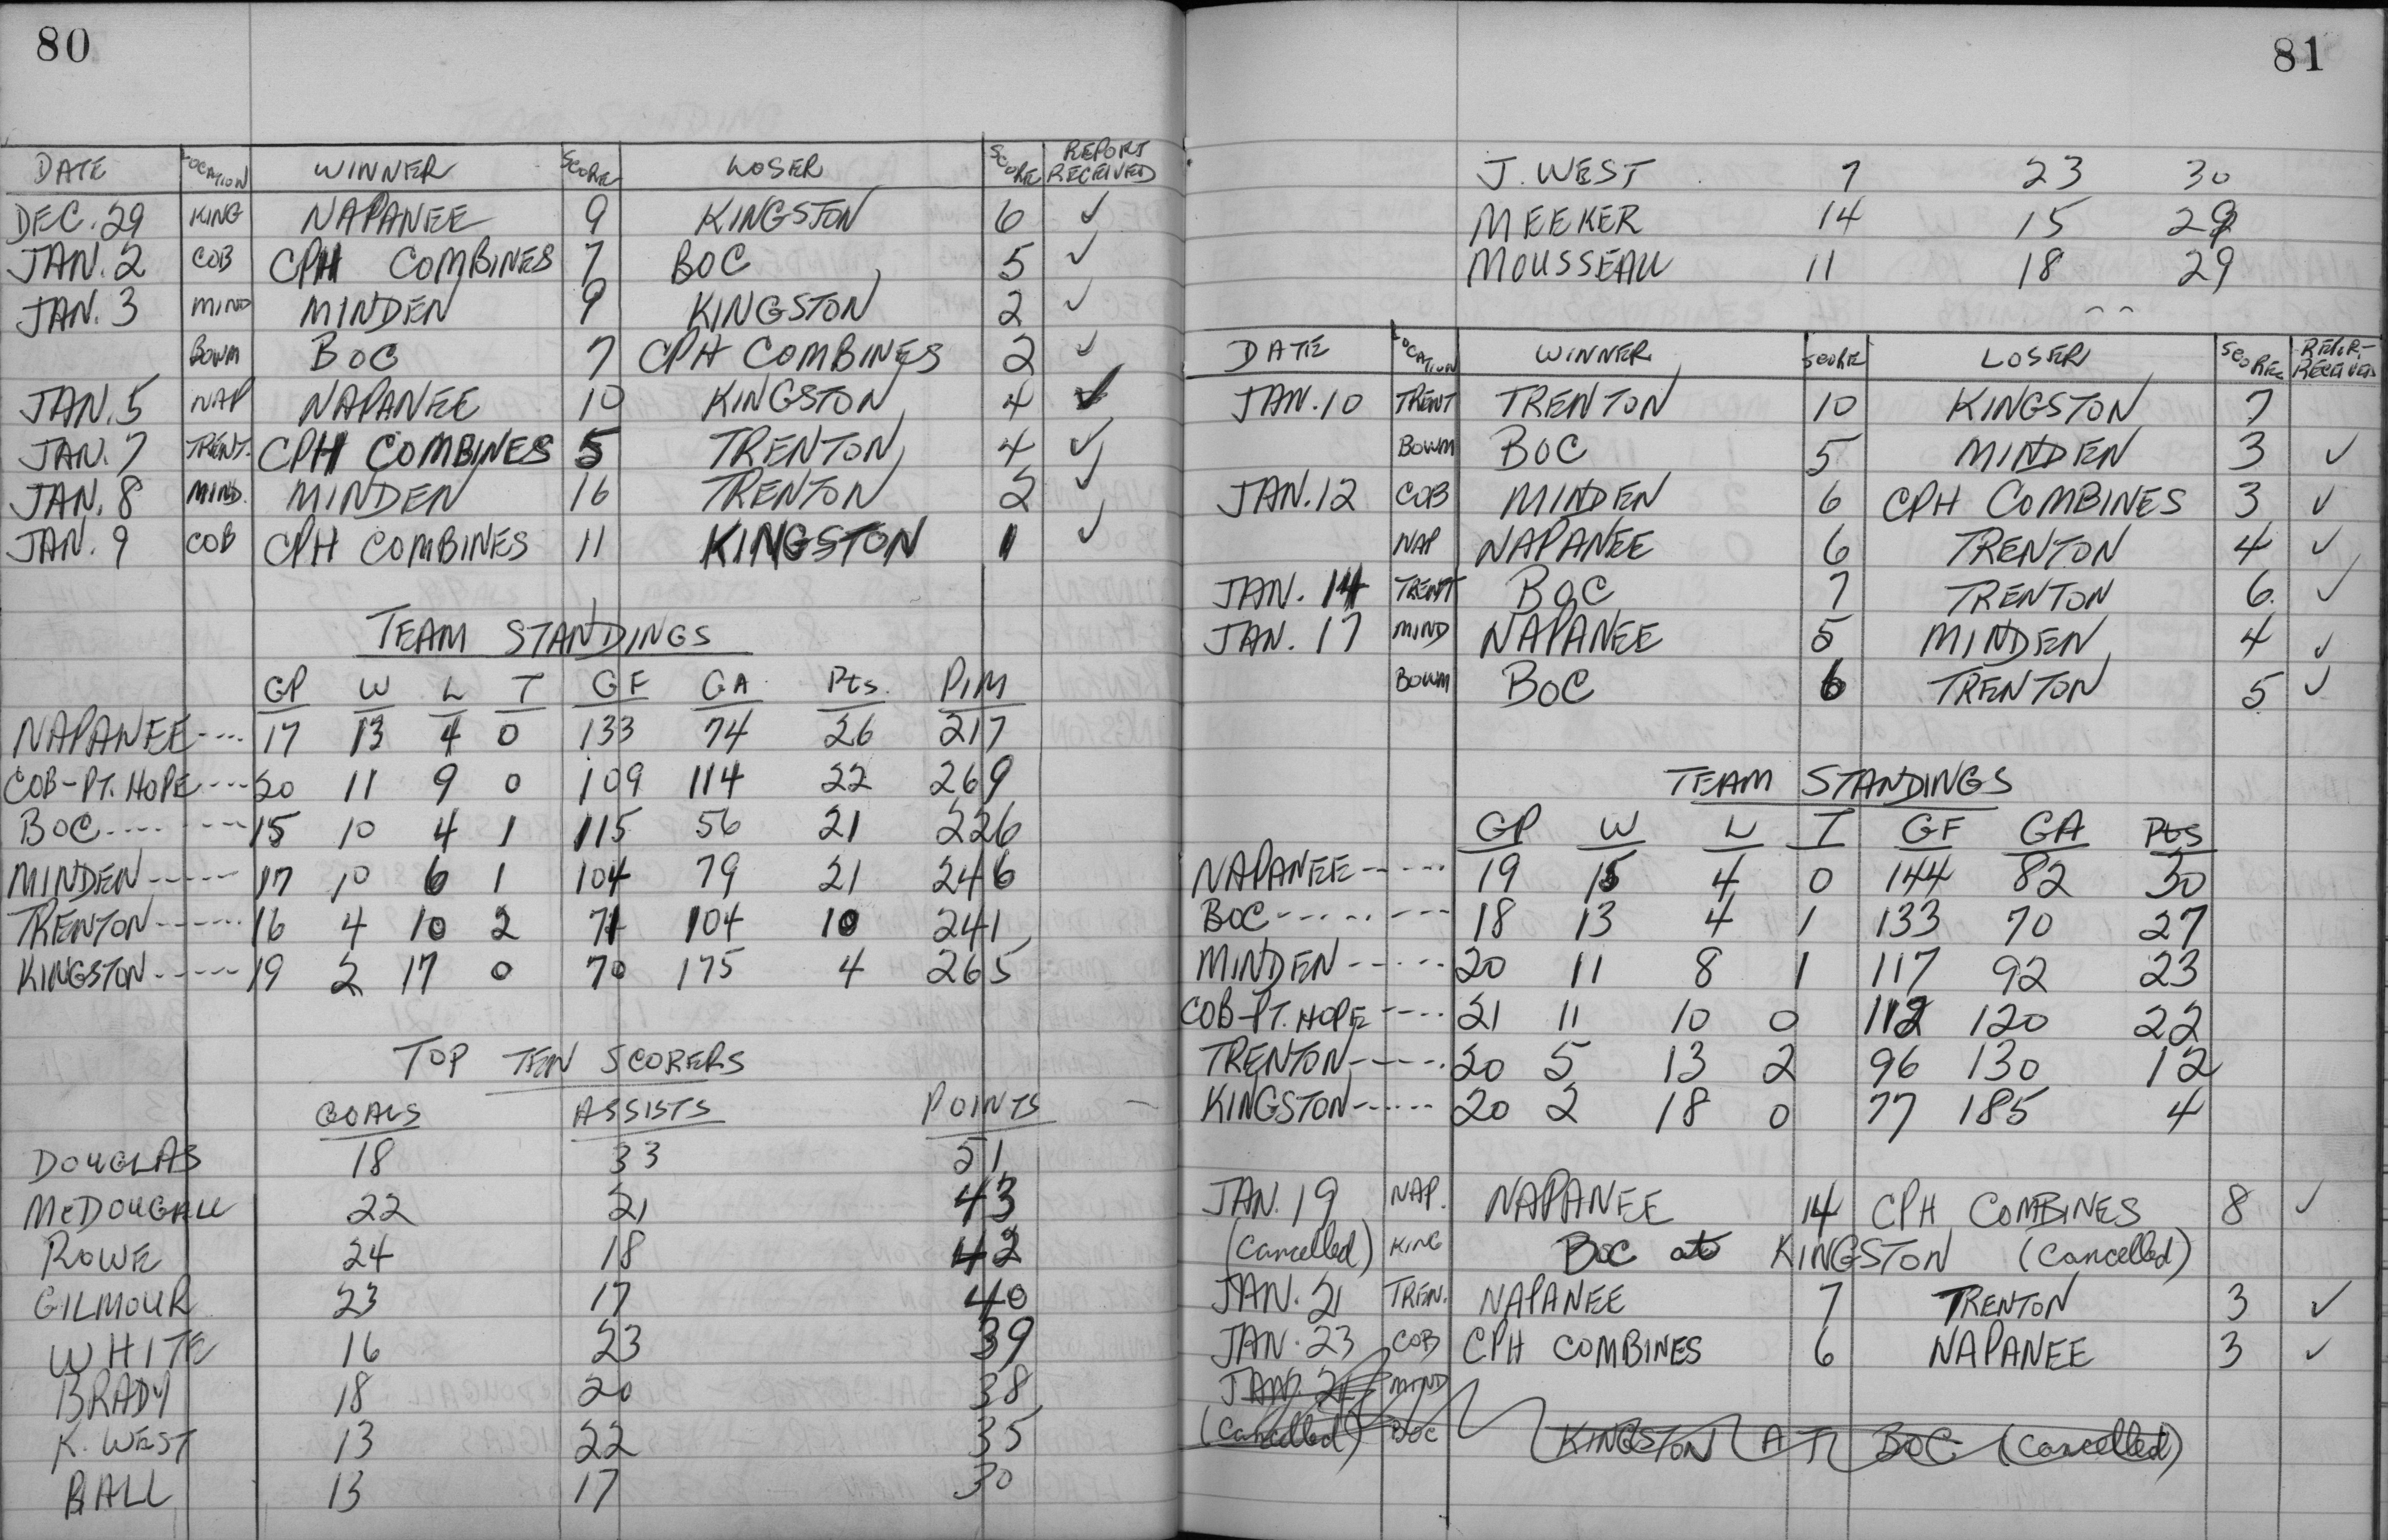 80
DATE LOCATION WINNER SCORE LOSER SCORE REPORT RECEIVED
DEC. 29 KING NAPANEE 9 KINGSTON 6 ✓
JAN. 2 COB CPH COMBINES 7 BOC 5 ✓
JAN. 3 MIND MINDEN 9 KINGSTON 2 ✓
BOWM BOC 7 CPH COMBINES 2 ✓
JAN. 5 NAP NAPANEE 10 KINGSTON 4 ✓
JAN. 7 TRENT. CPH COMBINES 5 TRENTON 4 ✓
JAN. 8 MIND. MINDEN 16 TRENTON 2 ✓
JAN. 9 COB CPH COMBINES 11 KINGSTON 1 ✓
TEAM STANDINGS
GP W L T GF GA Pts. PIM
NAPANEE---- 17 13 4 0 133 74 26 217
COB-PT. HOPE---- 20 11 9 0 109 114 22 269
BOC---- ---- 15 10 4 1 115 56 21 226
MINDEN----- 17 10 6 1 104 79 21 246
TRENTON------ 16 4 10 2 71 104 10 241
KINGSTON----- 19 2 17 0 70 175 4 265
TOP TEN SCORERS
GOALS ASSISTS POINTS
DOUGLAS 18 33 51
McDOUGALL 22 21 43
ROWE 24 18 42
GILMOUR 23 17 40
WHITE 16 23 39
BRADY 18 20 38
K. WEST 13 22 35
BALL 13 17 30
81
J. WEST 7 23 30
MEEKER 14 15 29
MOUSSEAU 11 18 29
DATE LOCATION WINNER SCORE LOSER SCORE REPORT RECEIVED
JAN. 10 TRENT TRENTON 10 KINGSTON 7
BOWM BOC 5 MINDEN 3 ✓
JAN. 12 COB MINDEN 6 CPH COMBINES 3 ✓
NAP NAPANEE 6 TRENTON 4 ✓
JAN. 14 TRENT BOC 7 TRENTON 6. ✓
JAN. 17 MIND NAPANEE 5 MINDEN 4 ✓
BOWM BOC 6 TRENTON 5 ✓
TEAM STANDINGS
GP W L T GF GA Pts
NAPANEE----- 19 15 4 0 144 82 30
BOC-------- 18 13 4 1 133 70 27
MINDEN----- 20 11 8 1 117 92 23
COB-PT. HOPE---- 21 11 10 0 112 120 22
TRENTON----- 20 5 13 2 96 130 12
KINGSTON------ 20 2 18 0 77 185 4
JAN. 19 NAP. NAPANEE 14 CPH COMBINES 8 ✓
(Cancelled) KING BOC at KINGSTON (Cancelled)
JAN. 21 TREN. NAPANEE 7 TRENTON 3 ✓
JAN. 23 COB CPH COMBINES 6 NAPANEE 3 ✓
JAN. MIND
(Cancelled) BOC KINGSTON AT BOC (Cancelled)